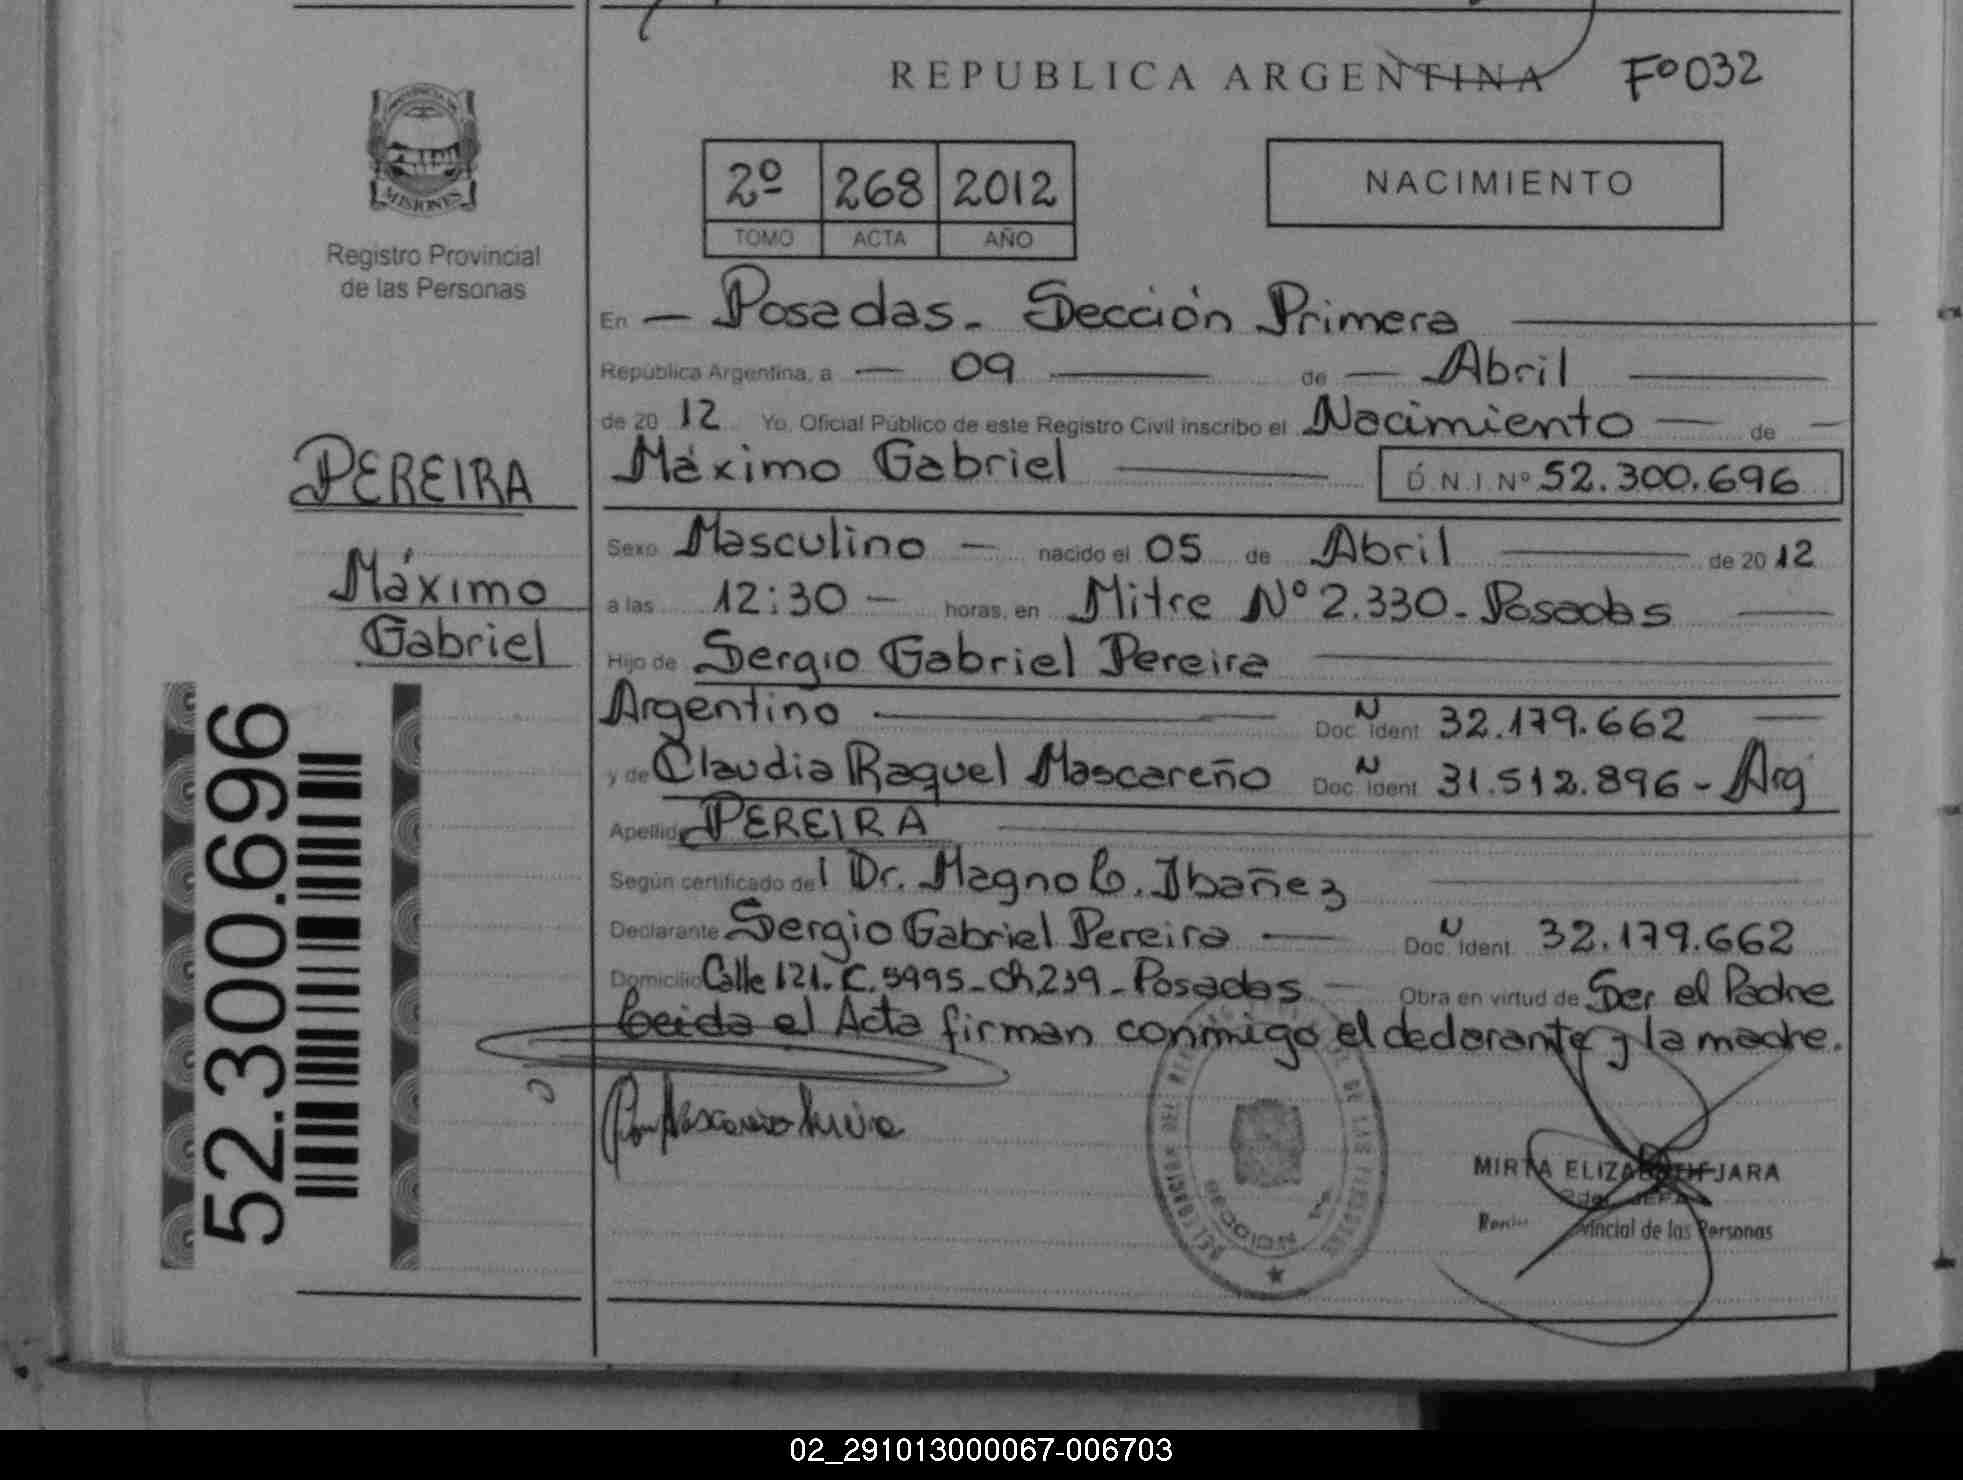 REPUBLICA ARGENTINA
Fº032
PROVINCIA DE
MISIONES
Registro Provincial
de las Personas
2º 268 2012
TOMO ACTA AÑO
NACIMIENTO
En — Posadas. Sección Primera
República Argentina, a — 09 — de — Abril
de 2012 Yo, Oficial Público de este Registro Civil inscribo el Nacimiento — de —
Máximo Gabriel — D.N.I. Nº 52.300.696
PEREIRA
Máximo
Gabriel
52.300.696
Sexo Masculino — nacido el 05 de Abril — de 2012
a las 12:30 — horas, en Mitre Nº 2.330. Posadas —
Hijo de Sergio Gabriel Pereira
Argentino — Doc. N Ident 32.179.662 —
y de Claudia Raquel Mascareño Doc. N Ident 31.512.896 - Arg
Apellido PEREIRA
Según certificado del Dr. Magno C. Ibañez
Declarante Sergio Gabriel Pereira — Doc. N Ident. 32.179.662
Domicilio Calle 121. C. 5995 - Ch. 239 - Posadas — Obra en virtud de Ser el Padre
Leida el Acta firman conmigo el declarante y la madre.
DE LAS PERSONAS
SECCION 1ª
MIRTA ELIZABETH JARA
Provincial de las Personas
02_291013000067-006703